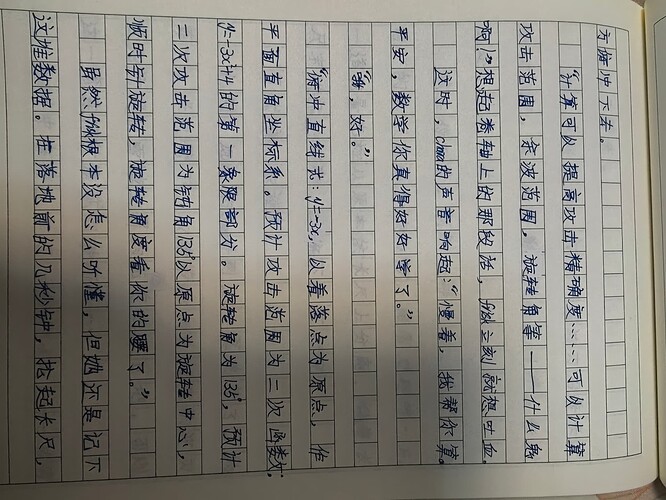 方俯冲下去。
“计算可以提高攻击精确度……可以计算
攻击范围，余波范围，旋转角等——什么鬼
啊！”想起卷轴上的那段话，立刻就想吐血。
这时，的声音响起：“慢着，我帮你算。
平安，数学你真得好好学了。”
“啊，好。”
“俯冲直线式：y=-3x，以着落点为原点，作
平面直角坐标系。预计攻击范围为二次函数：
y=-3x²+4的第一象限部分。旋转角为135°，预计
二次攻击范围为钝角135°以原点为旋转中心，
顺时针旋转，旋转角度看你的腰了。”
虽然根本没怎么听懂，但她还是记下
这堆数据。在落地前的几秒钟，抬起卡尺，